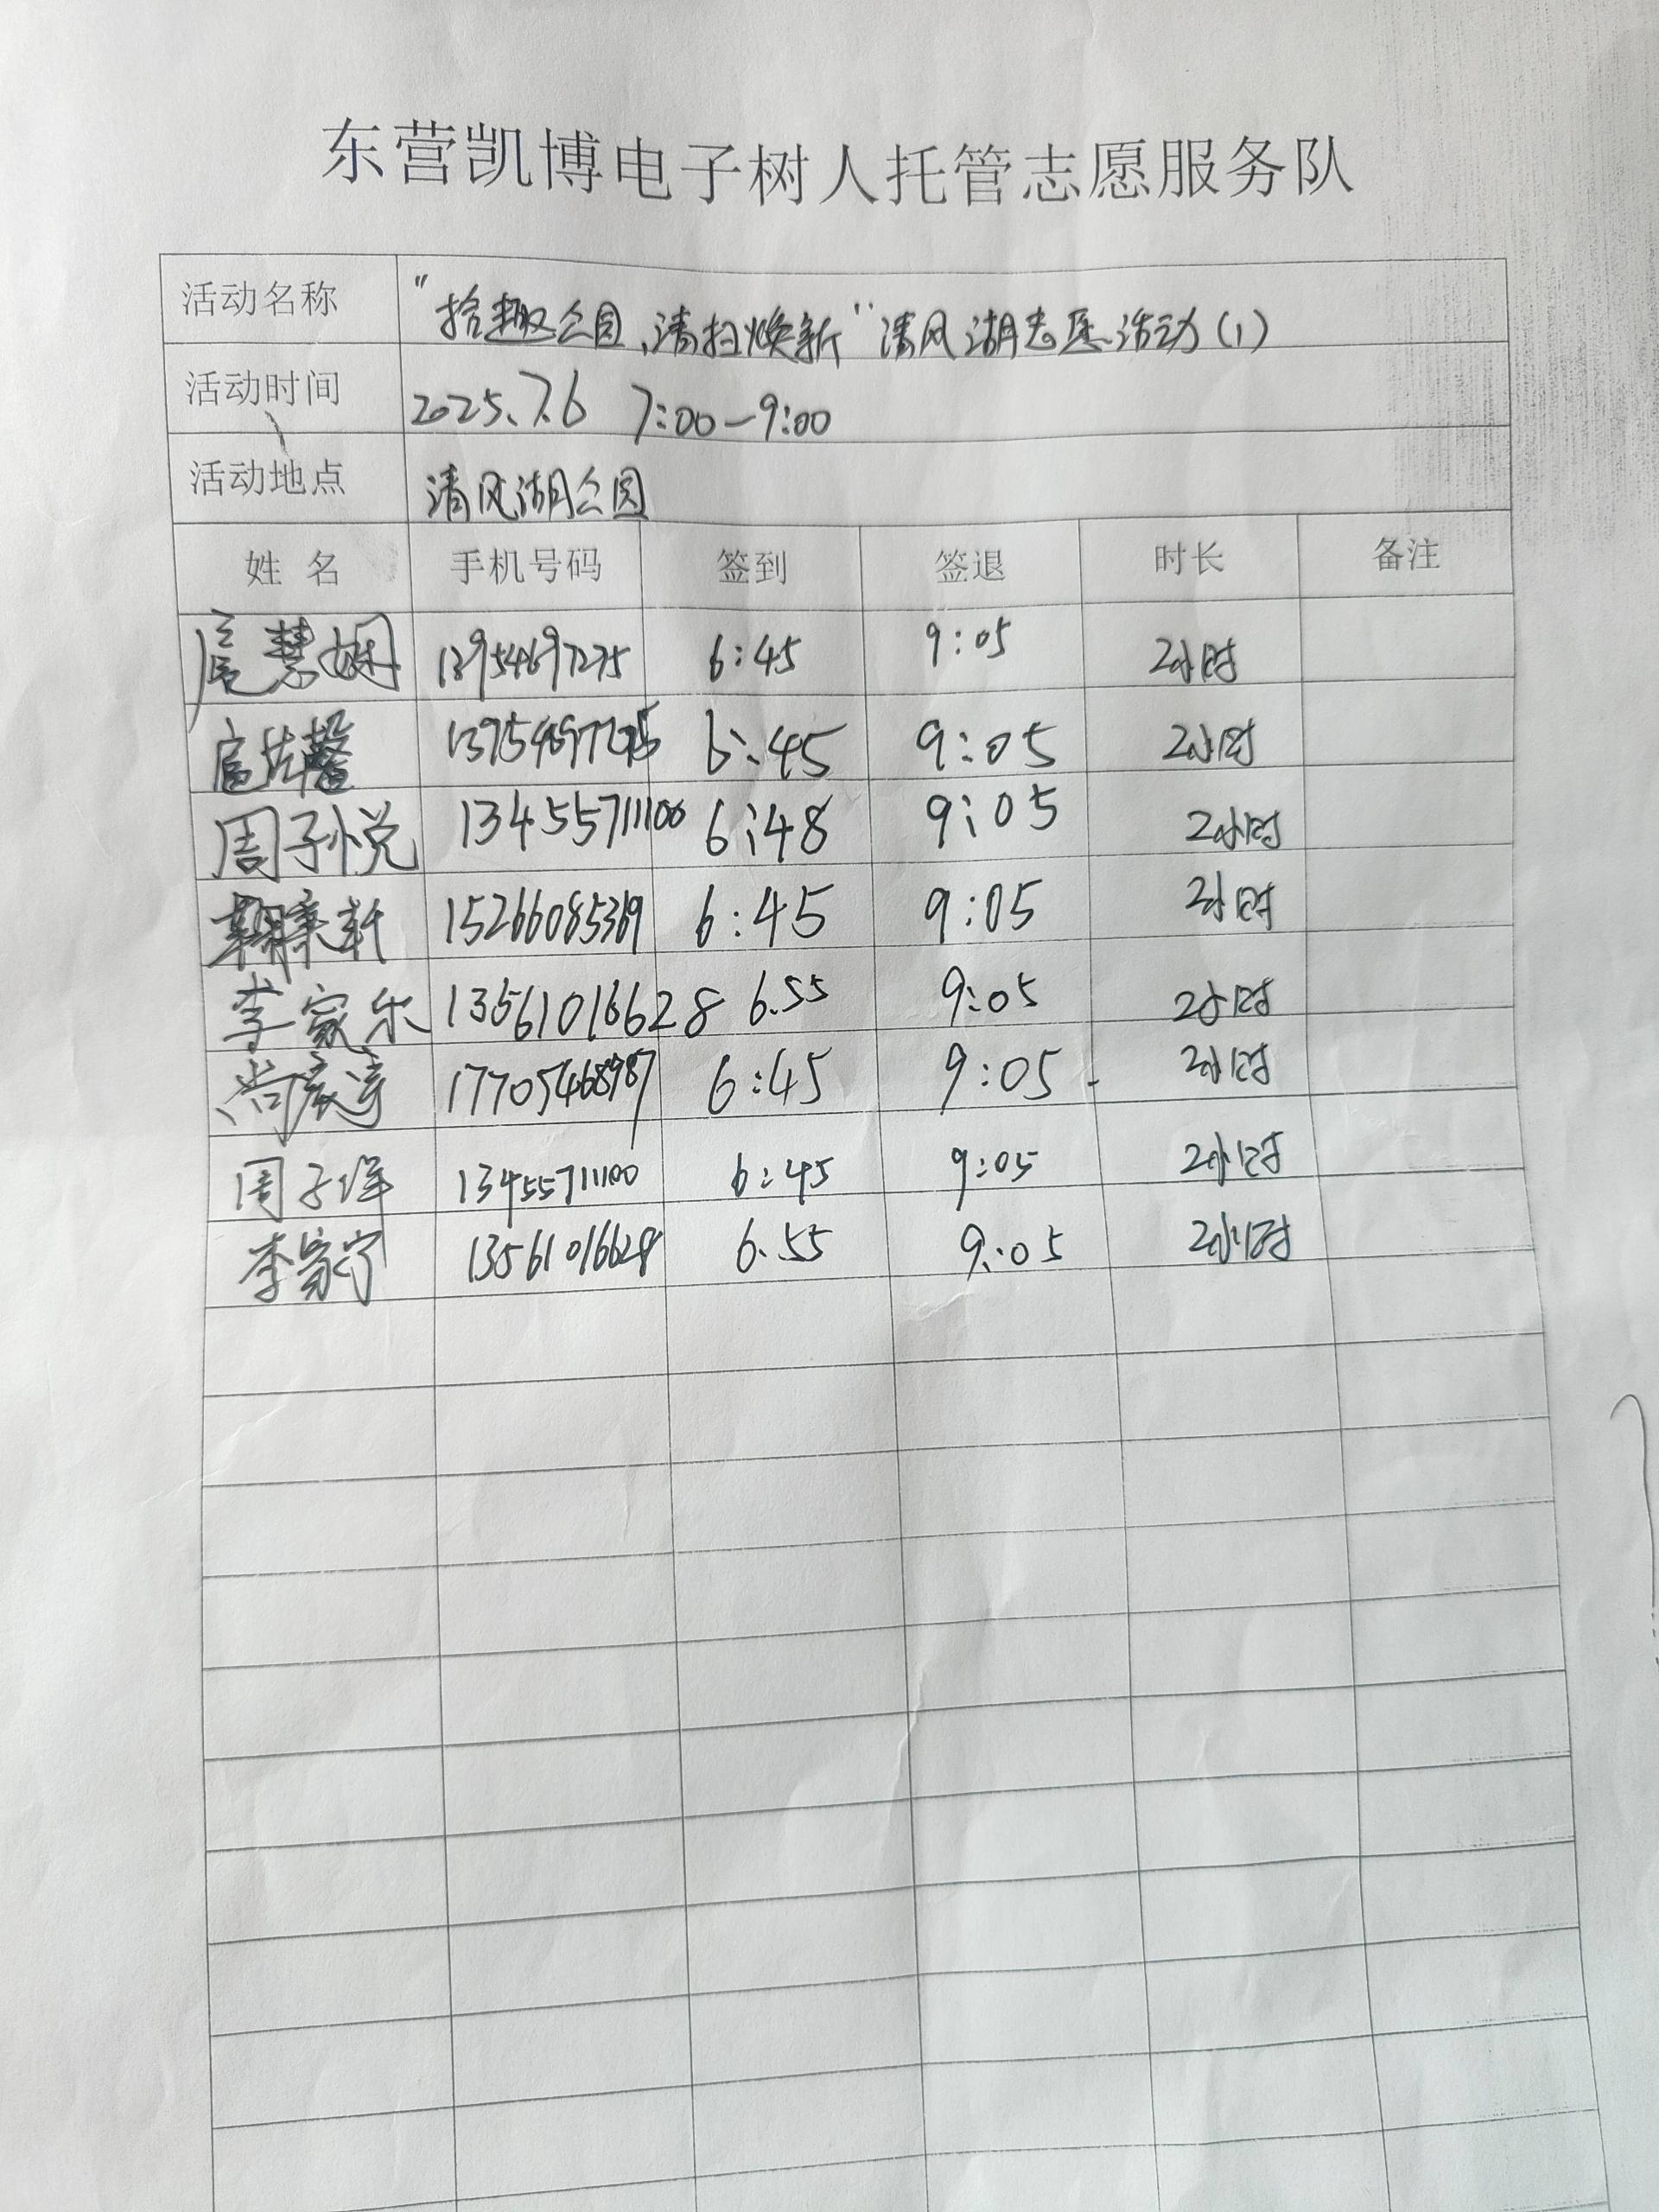 东营凯博电子树人托管志愿服务队
活动名称 "拾趣公园,清扫焕新"清风湖志愿活动(1)
活动时间 2025.7.6 7:00-9:00
活动地点 清风湖公园
姓名 手机号码 签到 签退 时长 备注
扈慧娴 13954697275 6:45 9:05 2小时
扈 馨 6:45 9:05 2小时
周子悦 13455711100 6:48 9:05 2小时
韩秉轩 15266085369 6:45 9:05 2小时
李家乐 13561016628 6.55 9:05 2小时
尚 17705468987 6:45 9:05 2小时
周子洋 13455711100 6:45 9:05 2小时
李家宁 13561016628 6.55 9:05 2小时